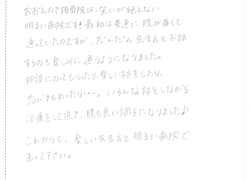 おおえのき接骨院は、笑いが絶えない
明るい病院です!最初は普通に腰が痛くて
通っていたのですが、だんだん先生方とお話
するのも楽しみに、通うようになりました。
相談にのってもらったり、楽しい話をしたり、
恋バナもあったり…。いろんな話をしながら
治療をして頂き、腰も良い調子になりました♪
これからも、楽しい先生方と明るい病院で
あって下さい。